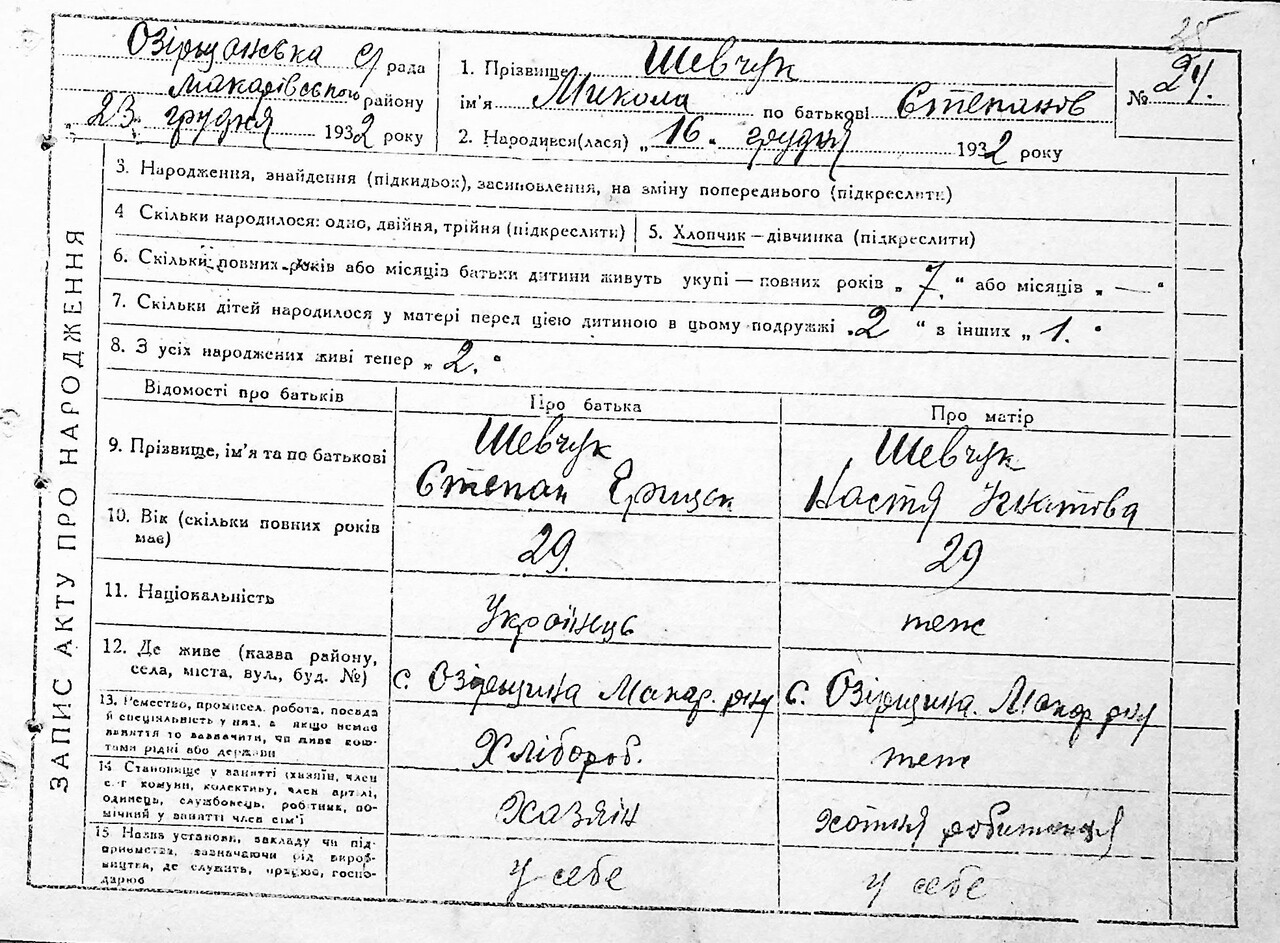 35
Озірщанська с/рада
Макарівського району
„ 23. грудня 1932 року
1. Прізвище Шевчук
ім'я Микола по батькові Степанов
2. Народився(лася) „ 16. грудня 1932 року
№ 24.
ЗАПИС АКТУ ПРО НАРОДЖЕННЯ
3. Народження, знайдення (підкидьок), засиновлення, на зміну попереднього (підкреслити)
4 Скільки народилося: одно, двійня, трійня (підкреслити)
5. Хлопчик — дівчинка (підкреслити)
6. Скільки повних років або місяців батьки дитини живуть укупі — повних років „ 7. “ або місяців „ — “
7. Скільки дітей народилося у матері перед цією дитиною в цьому подружжі „ 2 “ з інших „ 1. “
8. З усіх народжених живі тепер „ 2. “
Відомості про батьків
Про батька
Про матір
9. Прізвище, ім'я та по батькові
Шевчук
Степан
Шевчук
Настя Гнатова
10. Вік (скільки повних років має)
29.
29
11. Національність
Українець
теж
12. Де живе (назва району,
села, міста, вул., буд. №)
с. Озірщина Макар. р-ну
с. Озірщина. Макар. р-ну
13. Ремество, промисел, робота, посада
й спеціяльність у них, а якщо немає
заняття то зазначити, чи живе кош-
тами рідні або держави
Хлібороб.
теж
14. Становище у занятті (хазяїн, член
с-г комуни, колективу, член артілі,
одинець, службовець, робітник, по-
мічний у занятті член сім'ї
Хазяїн
хатня робітниця
15 Назва установи, закладу чи під-
приємства, зазначаючи рід вироб-
ництва, де служить, працює, госпо-
дарює
у себе
у себе